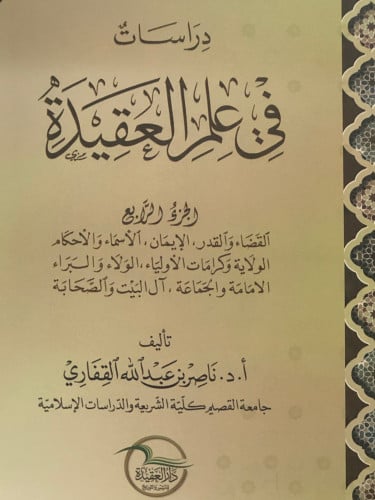 دراسات
في علم العقيدة
الجزء الرابع
القضاء والقدر، الإيمان، الأسماء والأحكام
الولاية وكرامات الأولياء، الولاء والبراء
الامامة والجماعة، آل البيت والصحابة
تأليف
أ.د. ناصر بن عبد الله القفاري
جامعة القصيم كلية الشريعة والدراسات الإسلامية
دار العقيدة